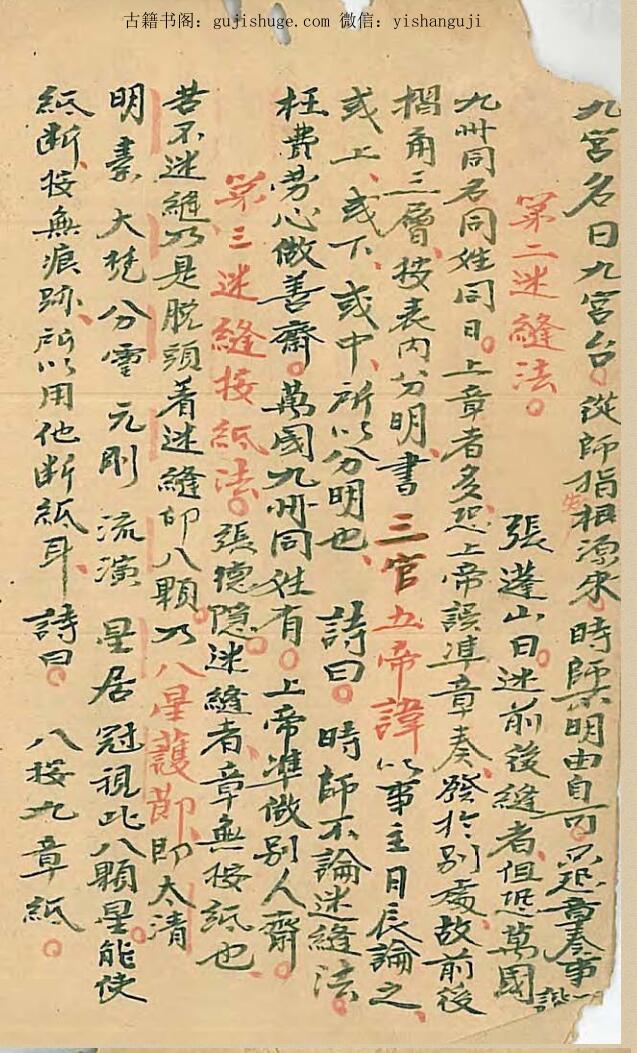 古籍书阁：gujishuge.com 微信：yishanguji
九宮名曰九宮台。從師指根源來時師明由自可不恐章奏事
第二迷縫法。張蓬山曰。迷前後縫者、但恐萬國
九州同名同姓同日。上章者多、恐上帝誤準章奏、發於別處、故前後
摺角三層、按表内分明、書三官五帝諱以事主月辰論之、
或上、或下、或中、所以分明也、詩曰。時師不論迷縫法。
枉費勞心做善齋。萬國九州同姓有。上帝准做別人齋。
第三迷縫接紙法。張德隱。迷縫者、章無接紙也、
若不迷縫、乃是脱頭着迷縫印八顆。乃八星護節、即太清
明素大梵分靈元剛流演星居冠視此八顆星。能使
紙斷、接無痕跡、所以用他斷紙耳、詩曰。八接九章紙。